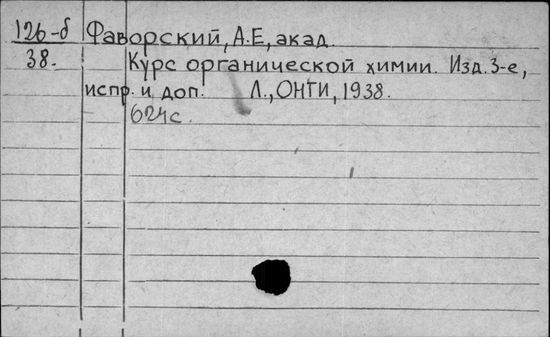 126-б Фаворский, А.Е, акад.
38. Курс органической химии. Изд. 3-е,
испр. и доп. Л., ОНТИ, 1938.
624с.